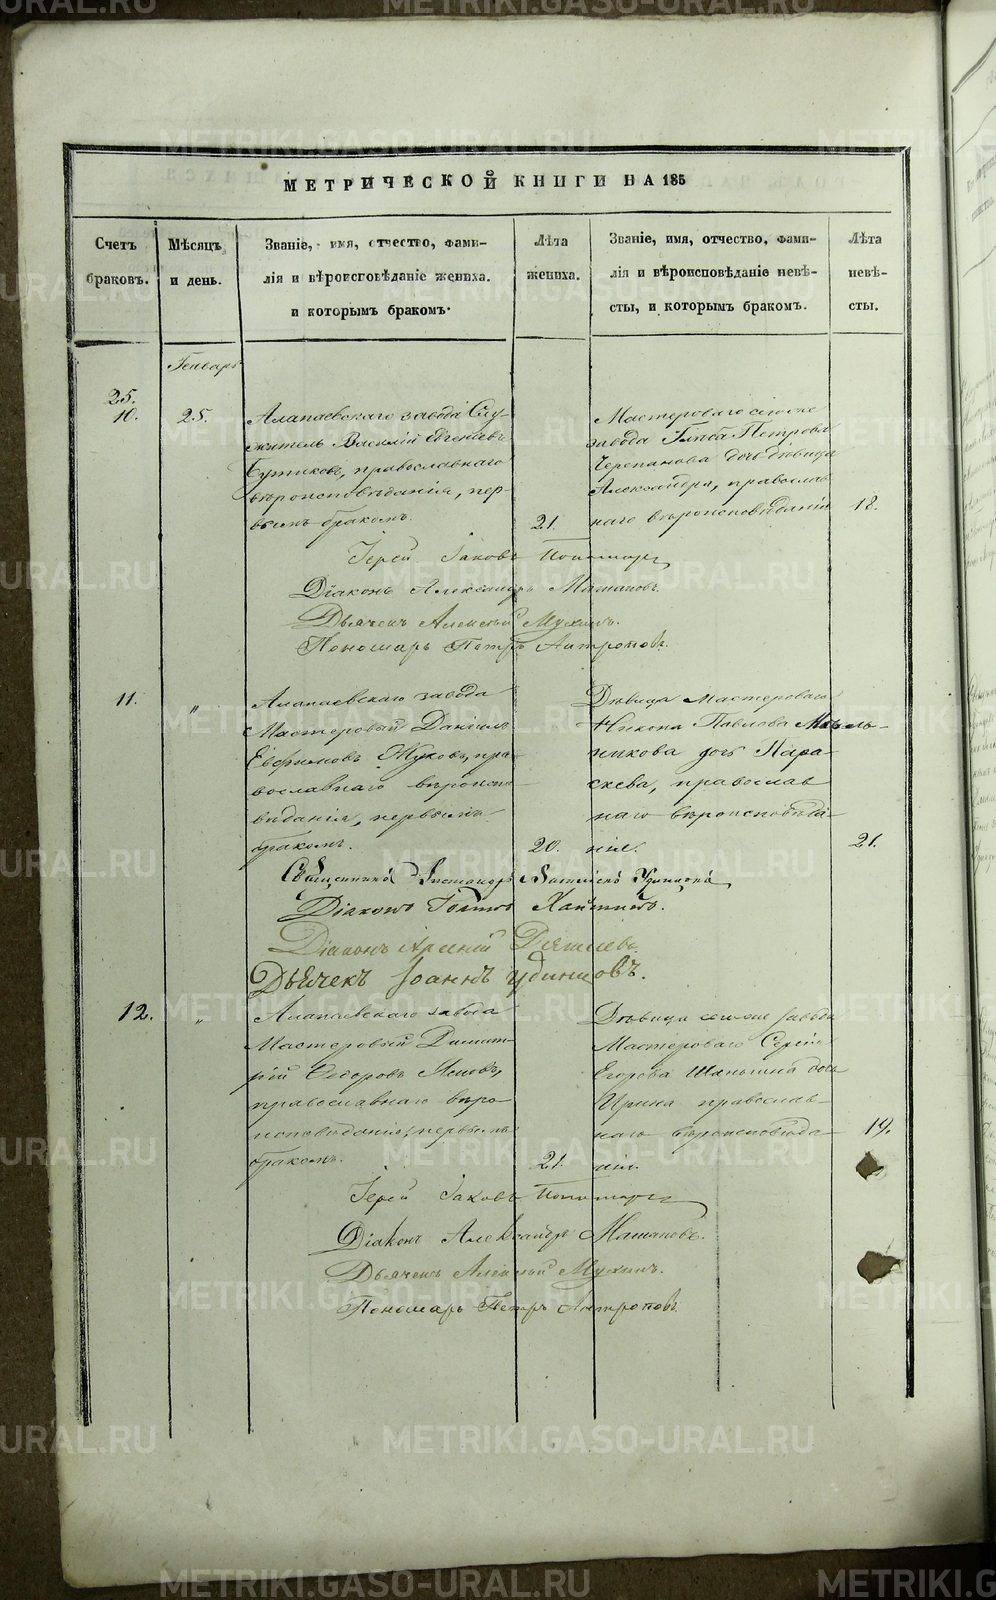 МЕТРИЧЕСКОЙ КНИГИ НА 185
Счетъ браковъ.
Мѣсяцъ и день.
Званіе, имя, отчество, фами-
лія и вѣроисповѣданіе жениха.
и которымъ бракомъ.
Лѣта жениха.
Званіе, имя, отчество, фами-
лія и вѣроисповѣданіе невѣ-
сты, и которымъ бракомъ.
Лѣта невѣ-
сты.
Генварь
25.
10.
25.
Алапаевскаго завода Слу-
житель Василій Евгеніевъ
православнаго
вѣроисповѣданія, пер-
вымъ бракомъ.
21.
Мастероваго
завода Глѣба Петрова
Черепанова дочь дѣвица
Александра, православ
наго вѣроисповѣданія
18.
Іерей Іаковъ Пономарев
Діаконъ Александръ
Дьячекъ Алексѣй Мухинъ.
Пономарь Петръ Антроповъ.
11.
"
Алапаевскаго завода
Мастеровый Даніилъ
Евфимовъ Жуковъ, пра
вославнаго вѣроиспо
вѣданія, первымъ
бракомъ.
20.
Дѣвица Мастероваго
Никона Павлова Мель-
никова дочь Пара-
скева, православ
наго вѣроисповѣда-
нія.
21.
Священникъ
Діаконъ
Діаконъ Арсеній
Дьячекъ Іоаннъ Удинцовъ.
12.
"
Алапаевскаго завода
Мастеровый Димит-
рій Ѳедоровъ
православнаго вѣро-
исповѣданія, первымъ
бракомъ.
21.
Дѣвица завода
Мастероваго Сергія
Егорова Шаньгина дочь
Ирина православ-
наго вѣроисповѣда
нія.
19.
Іерей Іаковъ Пономарев
Діаконъ Александръ
Дьячекъ Алексѣй Мухинъ.
Пономарь Петръ Антроповъ
METRIKI.GASO-URAL.RU